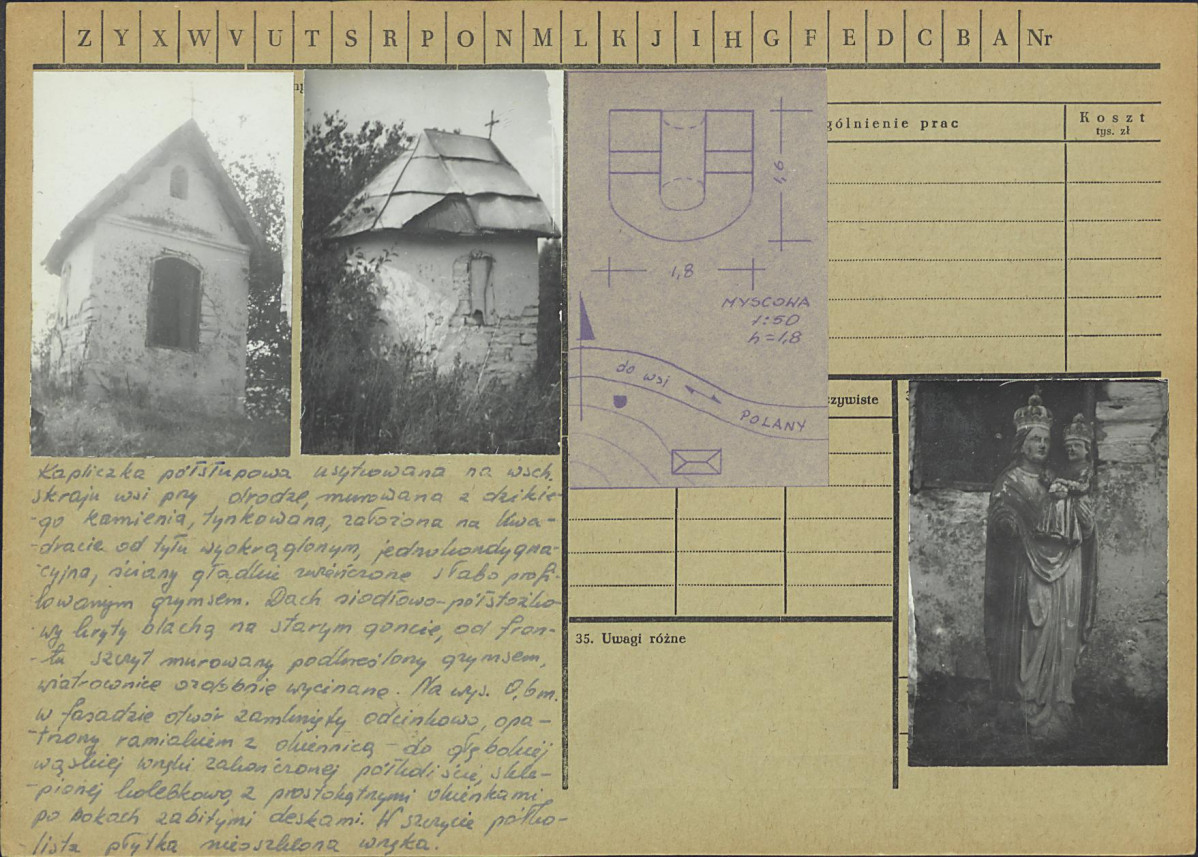 Z Y X W V U T S R P O N M L K J I H G F E D C B A Nr
gólnienie prac
Koszt
tys. zł
1,6
1,8
MYSCOWA
1:50
h=1,8
do wsi
POLANY
zywiste
35. Uwagi różne
Kapliczka półsłupowa usytuowana na wsch.
skraju wsi przy drodze, murowana z dzikie-
-go kamienia, tynkowana, założona na kwa-
-dracie od tyłu wyokrąglonym, jednokondygna-
-cyjna, ściany gładkie zwieńczone słabo profi-
lowanym gzymsem. Dach siodłowo-półstożko-
wy kryty blachą na starym goncie, od fron-
-tu szczyt murowany podkreślony gzymsem,
wiatrownice ozdobnie wycinane. Na wys. 0,6m.
w fasadzie otwór zamknięty odcinkowo, opa-
-trzony ramiakiem z okiennicą - do głębokiej
wąskiej wnęki zakończonej półkoliście, skle-
-pionej kolebkowo, z prostokątnymi okienkami
po bokach zabitymi deskami. W szczycie półko-
lista płytka nieoszklona wnęka.